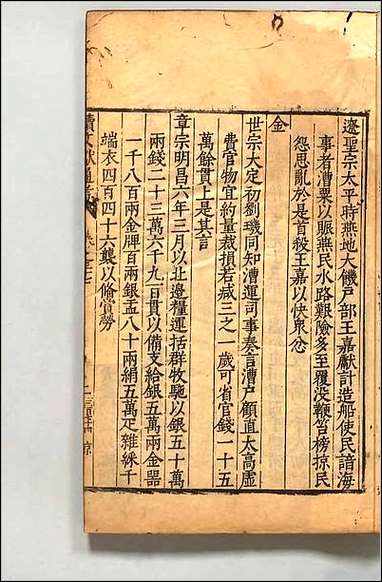 遼聖宗太平時燕地大饑戶部王嘉獻計造船使民諳海
事者漕粟以賑燕民水路艱險多至覆没鞭笞榜掠民
怨思亂於是首殺王嘉以快衆忿
金
世宗大定初劉璣同知漕運司事奏言漕戶顧直太高虛
費官物宜約量裁損若减三之一歲可省官錢一十五
萬餘貫上是其言
章宗明昌六年三月以北邊糧運括群牧駞以銀五十萬
兩錢二十三萬六千九百貫以備支給銀五萬兩金器
一千八百兩金牌百兩銀盂八十兩絹五萬疋雜綵千
端衣四百四十六襲以偹賞勞
續文獻通考